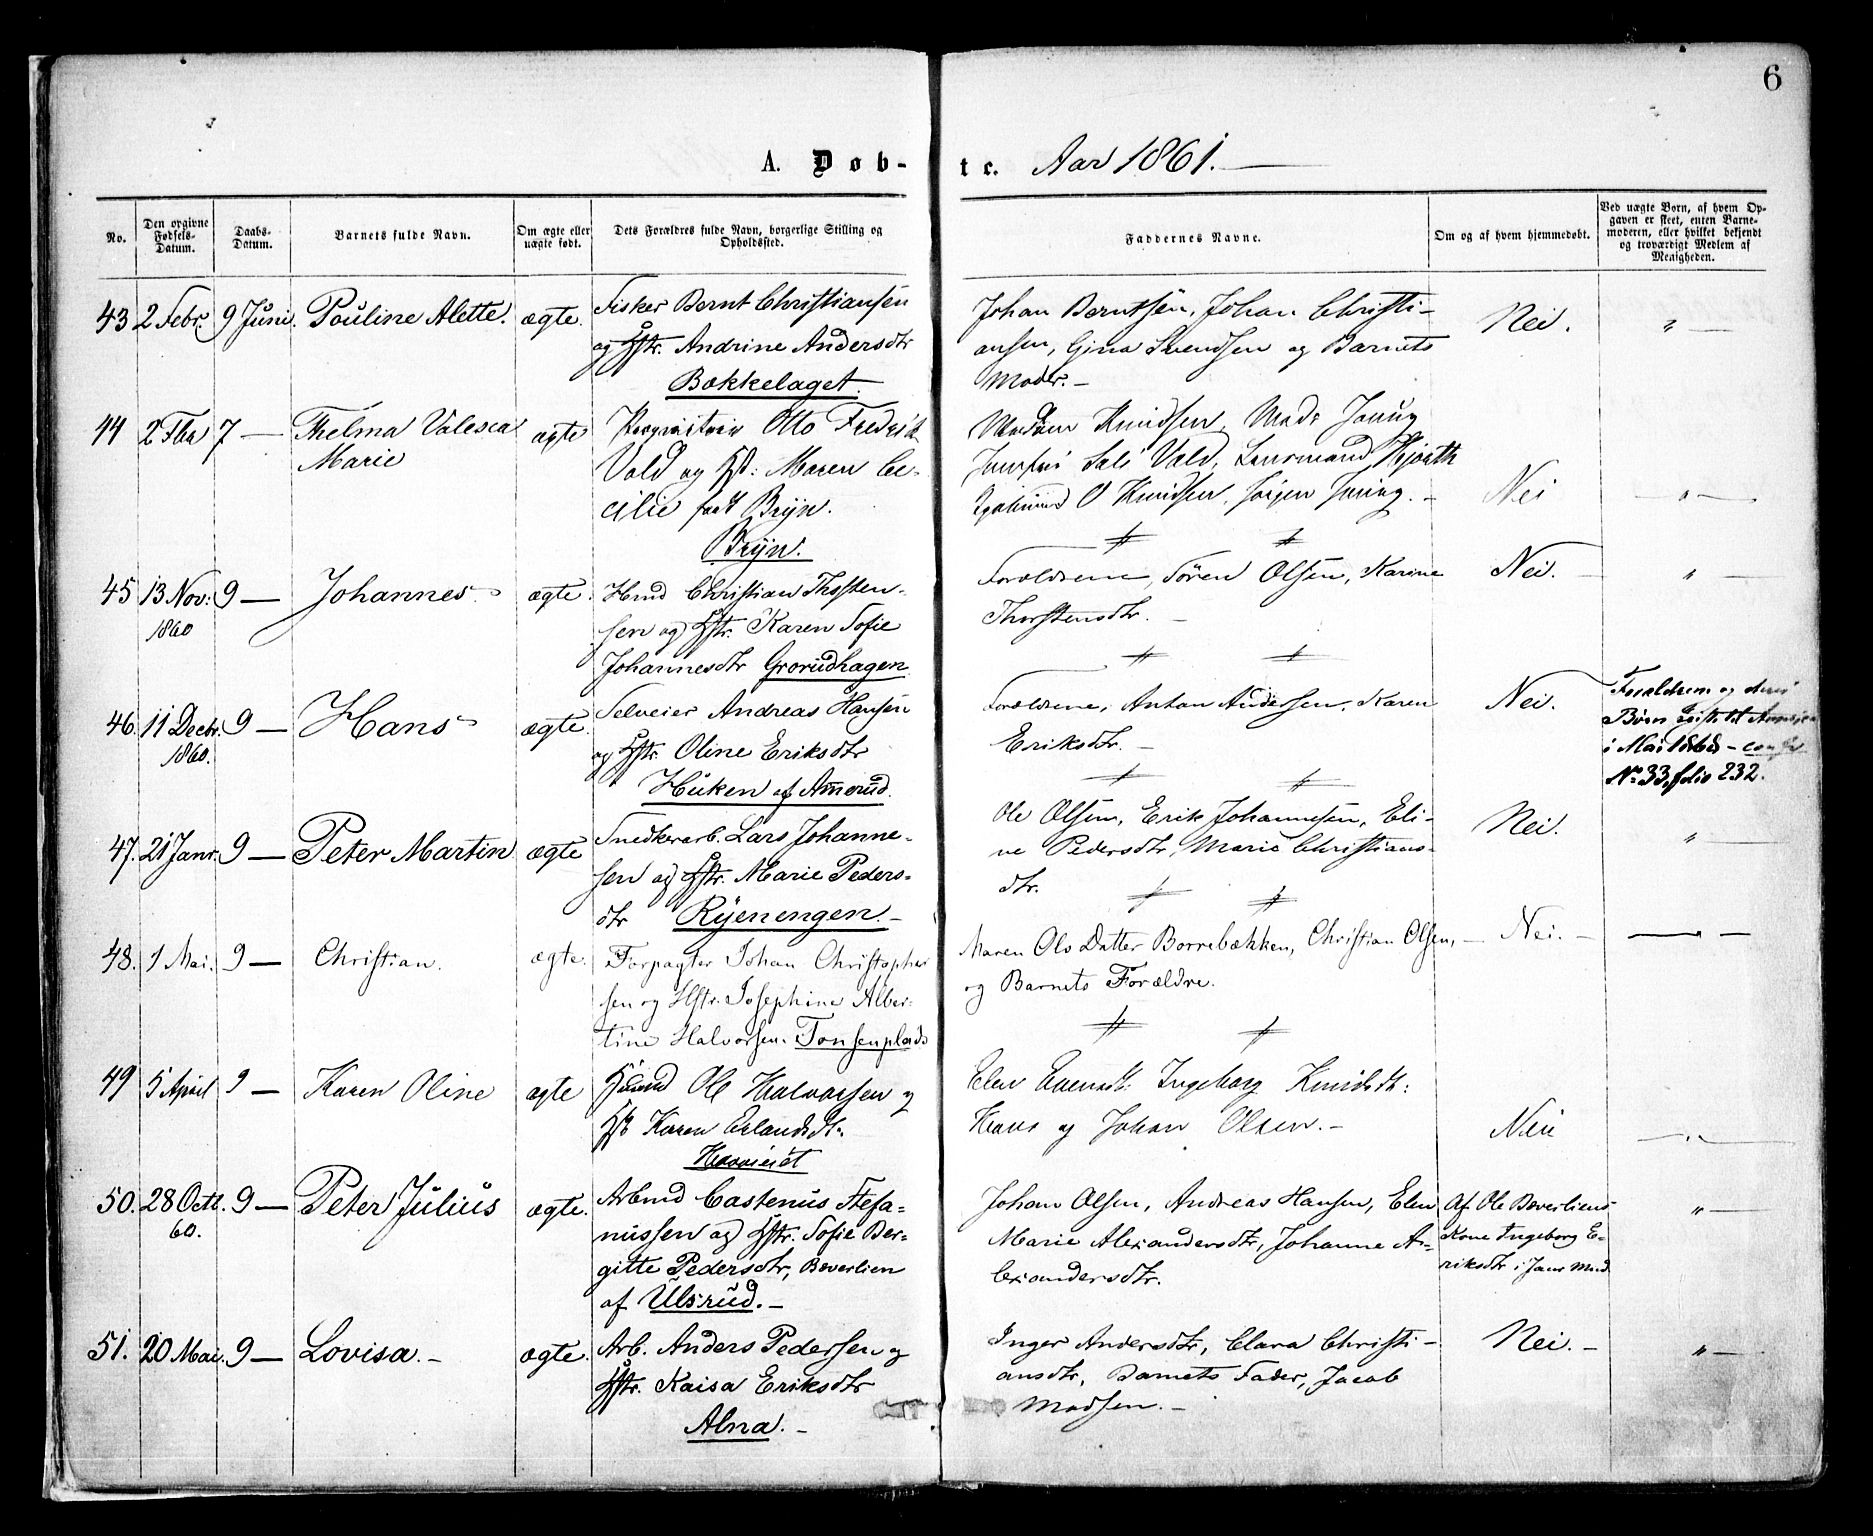 6
A. Døb-te. Aar 1861.
No.
Den opgivne Fødsels-Datum.
Daabs-Datum.
Barnets fulde Navn.
Om ægte eller uægte født.
Dets Forældres fulde Navn, borgerlige Stilling og Opholdssted.
Faddernes Navne.
Om og af hvem hjemmedøbt.
Ved uægte Børn, af hvem Opgaven er skeet, enten Barnemoderen, eller hvilket bekjendt og troværdigt Medlem af Menigheden.
43 2 Febr. 9 Juni. Pouline Alette. ægte.
Fisker Bernt Christiansen
og Hstr. Andrine Andersdtr
Bækkelaget.
Johan Berntsen, Johan Christi-
ansen, Gina Svendsen og Barnets
Moder. -
Nei. "
44 2 Fbr 7 — Thelma Valesca
Marie
ægte
Otto Fredrik
Vold og H: Maren Ce-
cilie født Bryn.
Bryn.
Madam Knudsen, Mad:
Vold, Lensmand Hjorth
O Knudsen, -
Nei "
45 13 Nov: 9 — Johannes
1860
ægte.
Hmd Christian Thosten-
sen og Hstr. Karen Sofie
Johannesdtr Grorudhagen
Forældrene, Søren Olsen, Karine
Thorstensdtr. -
Nei. "
46. 11 Decbr. 9 — Hans
1860.
ægte.
Selveier Andreas Hansen
og Hstr. Oline Eriksdtr
Huken af Ammerud.
Forældrene, Anton Andersen, Karen
Eriksdtr. -
Nei.
Forældrene og deres
Børn
i Mai - confr
No 33, folio 232.
47. 21 Janr. 9 — Peter Martin ægte
Snedkerarb. Lars Johanne-
sen og Hstr. Marie Peders-
dtr Ryenengen. -
Ole Olsen, Erik Johannesen, Eli-
ne Pedersdtr, Marie Christians-
dtr.
Nei. "
48. 1 Mai. 9 — Christian. ægte.
Forpagter Johan Christopher
sen og Hstr. Josephine Alber-
tine Halvorsen. Tonsenplads
Maren Ols Datter Borrebækken, Christian Olsen, -
og Barnets Forældre.
Nei. -
49 5 April 9 — Karen Oline ægte
Huusmd Ole Halvorsen og
H Karen Erlandsdt.
Elen Ingeborg Knudsdt:
Hans og Johan Olsen. -
Nei "
50. 28 Octl. 9 — Peter Julius ægte.
60.
Arbmd Castenus Stefa-
nussen og Hstr. Sofie Ber-
gitte Pedersdtr, Bøverlien
af Ulsrud. -
Johan Olsen, Andreas Hansen, Elen
Marie Alexandersdtr, Johanne A-
lexandersdtr.
Af Ole Bøverliens
Kone Ingeborg E-
riksdtr i Janr Mnd
"
51. 20 Mai. 9 — Lovisa. - ægte.
Arb. Anders Pedersen og
Hstr. Kaisa Eriksdtr
Alna. -
Inger Andersdtr, Clara Christi-
ansdtr, Barnets Fader, Jacob
Madsen. -
Nei. - "